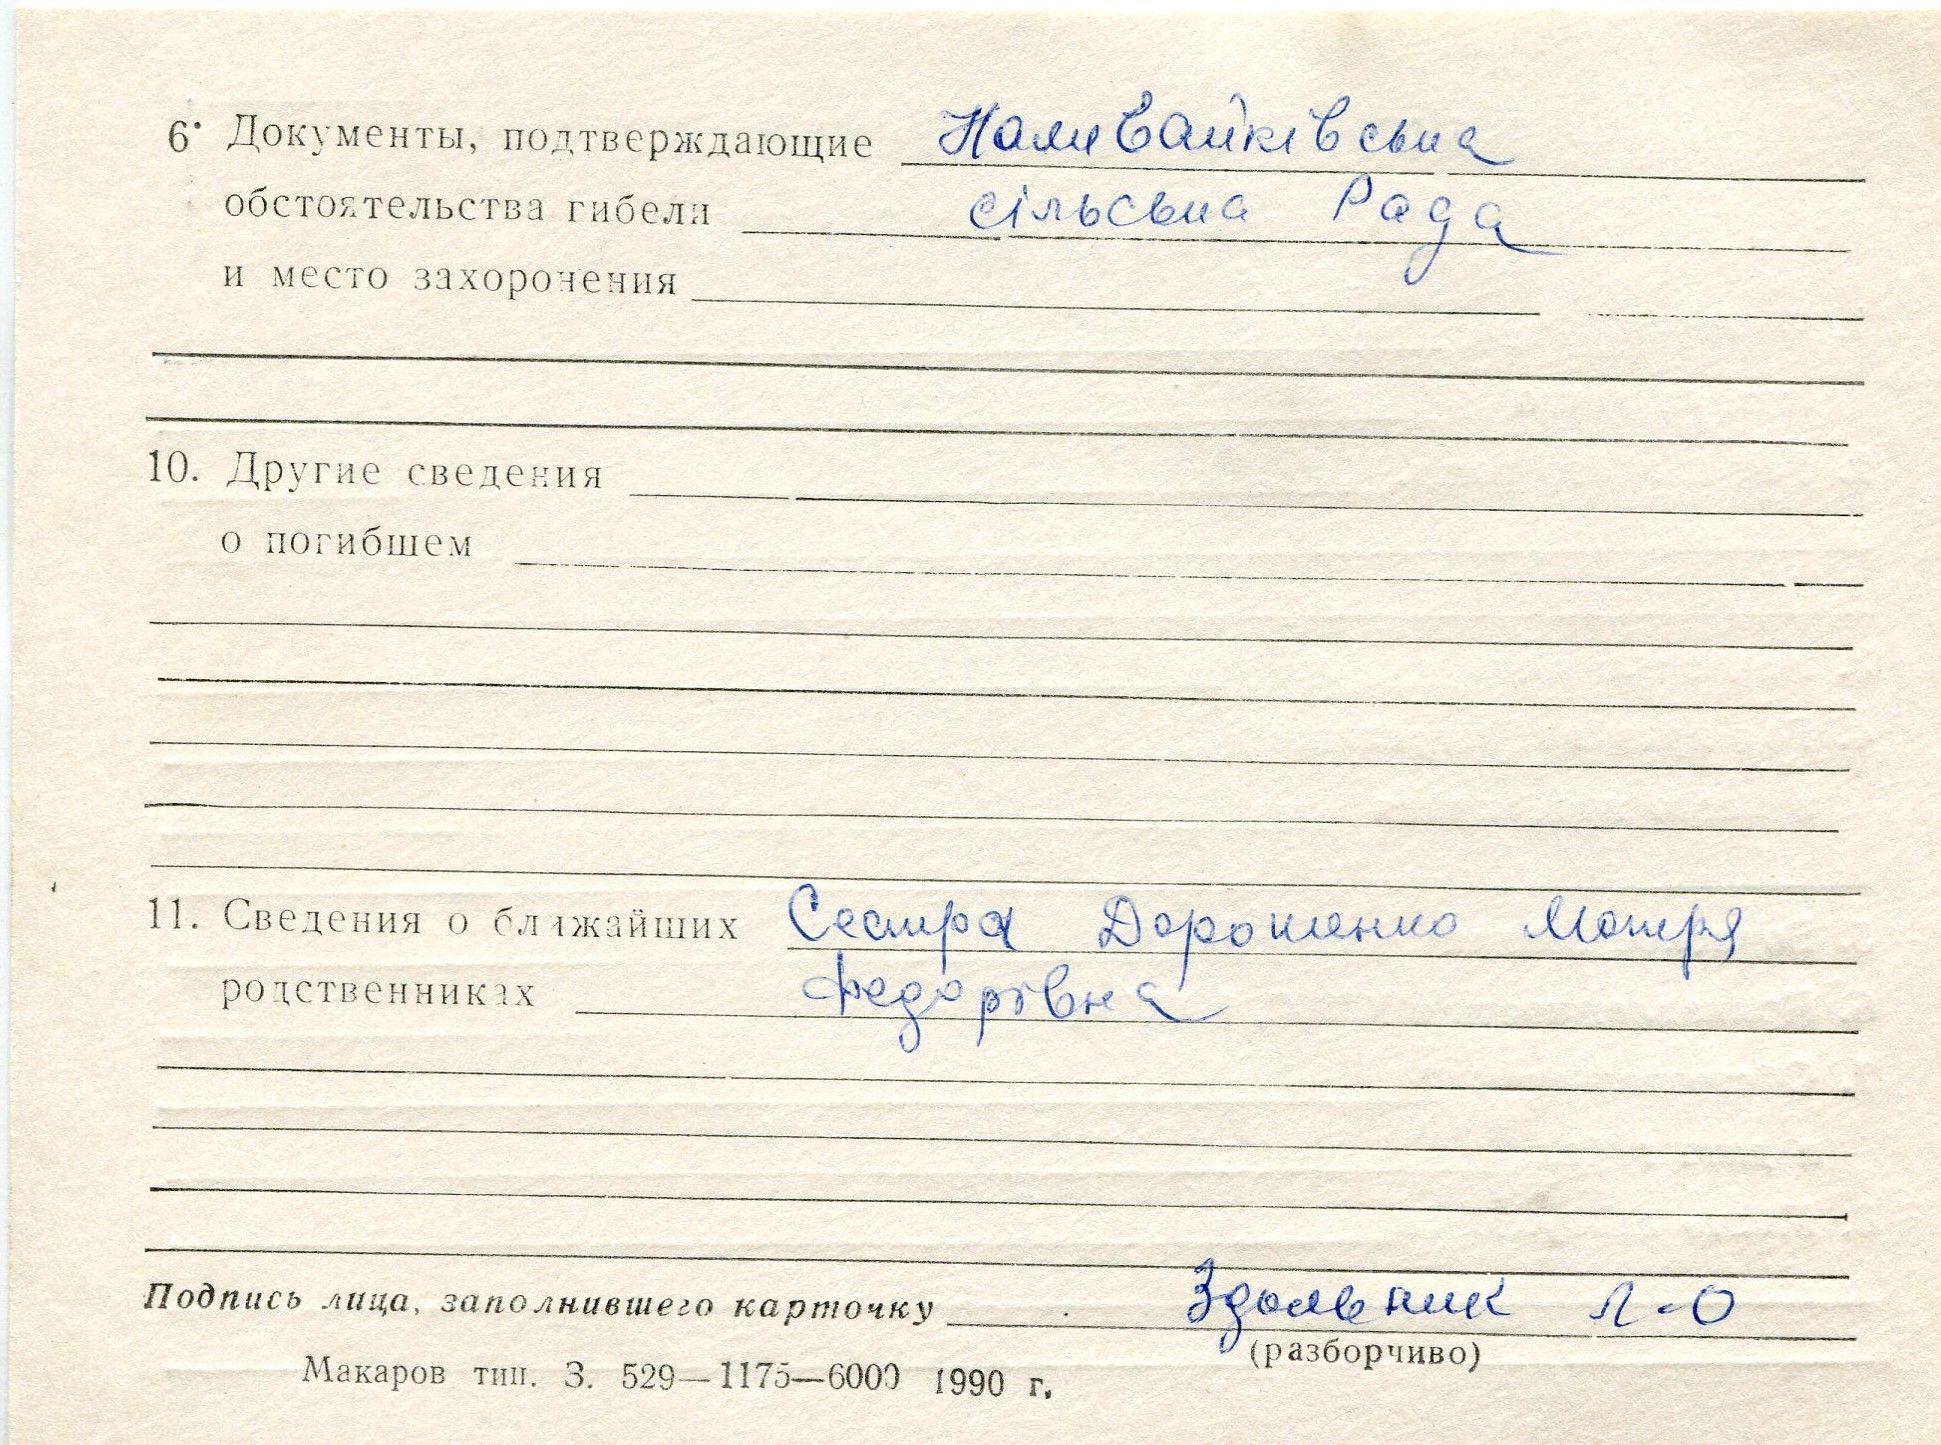 6. Документы, подтверждающие Наливайківська
обстоятельства гибели сільська Рада
и место захоронения
10. Другие сведения
о погибшем
11. Сведения о ближайших Сестра Дорошенко Мотря
родственниках Федорівна
Подпись лица, заполнившего карточку Здольник Л.О
(разборчиво)
Макаров тип. З. 529—1175—6000 1990 г.